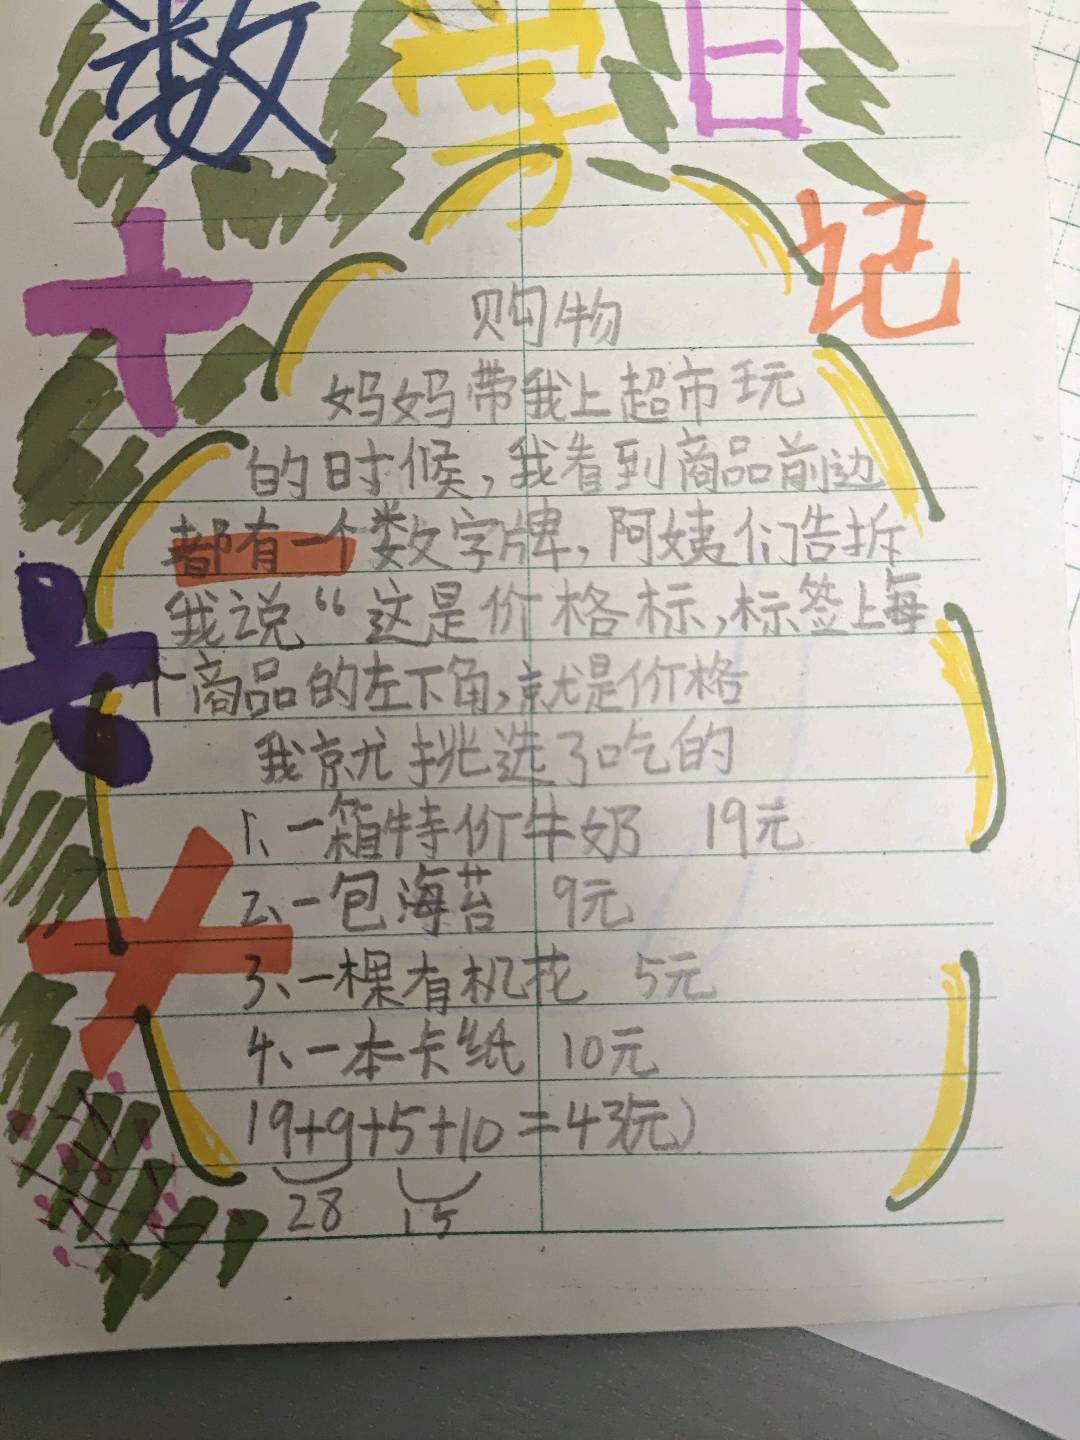 数学日记
购物
妈妈带我上超市玩
的时候,我看到商品前边
都有一个数字牌,阿姨们告拆
我说“这是价格标,标签上每
个商品的左下角,就是价格
我就挑选了吃的
1、一箱特价牛奶 19元
2、一包海苔 9元
3、一棵有机花 5元
4、一本卡纸 10元
19+9+5+10=43(元)
28 15